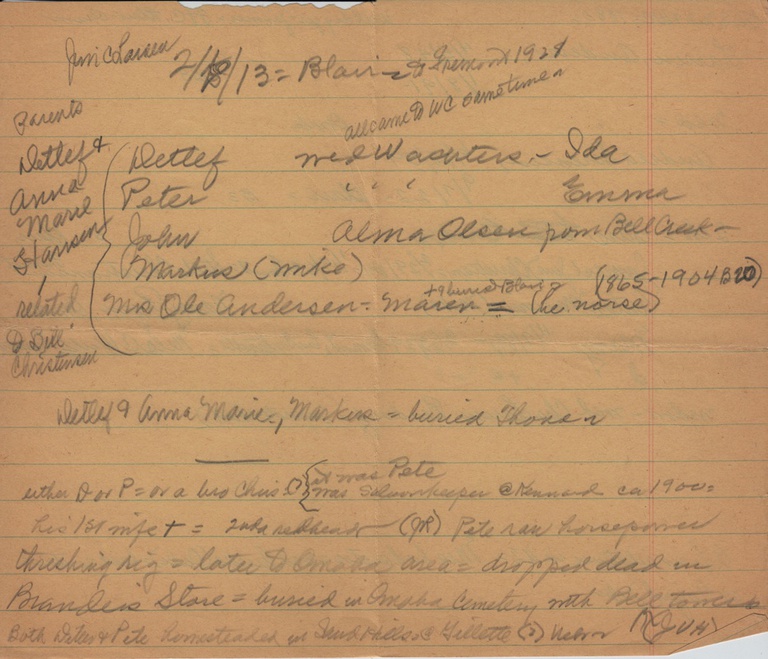 Jim C Larsen
2/18/13 = Blair - to Fremont 1928
all came to WC sometimes
Parents
Detlef & Anna Marie Hansen
related to Bill Christensen
Detlef wed Wachters - Ida
Peter " " " Emma
John Alma Olsen from Bell Creek -
Markus (Mike)
Mrs Ole Andersen - Maren = (he norse)
+ & buried Blair (1865-1904 B20)
Detlef & Anna Marie, Markus = buried
either D or P = or a bro Chris (?) { it was Pete
was Saloonkeeper @ Kennard ca 1900 =
his 1st wife + = 2nd a redhead (JR) Pete ran horsepower
threshing rig = later to Omaha area = dropped dead in
Brandeis Store = buried in Omaha Cemetery with Bell towers
Both Detlef & Pete homesteaded in Sand Hills @ Gillette (?) Nebr